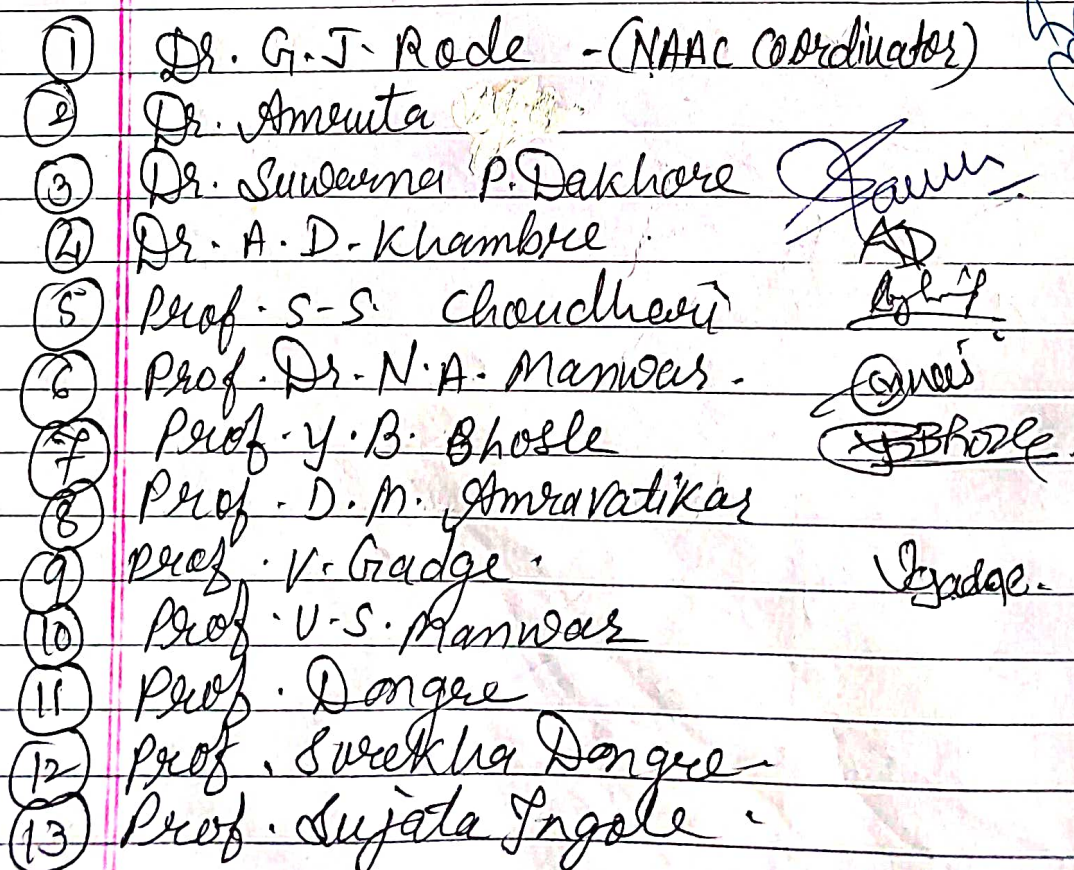 1 Dr. G.J. Rode - (NAAC Coordinator)
2 Dr. Amruta
3 Dr. Suwarna P. Dakhore
4 Dr. A. D. Khambre AD
5 Prof. S-S. Choudhari
6 Prof. Dr. N.A. Manwar.
7 Prof. Y.B. Bhosle YBBhosle
8 Prof. D.M. Amravatikar
9 Prof. V. Gadge. Vgadge.
10 Prof. U.S. Manwar
11 Prof. Dongre
12 Prof. Surekha Dongre
13 Prof. Sujata Ingole.